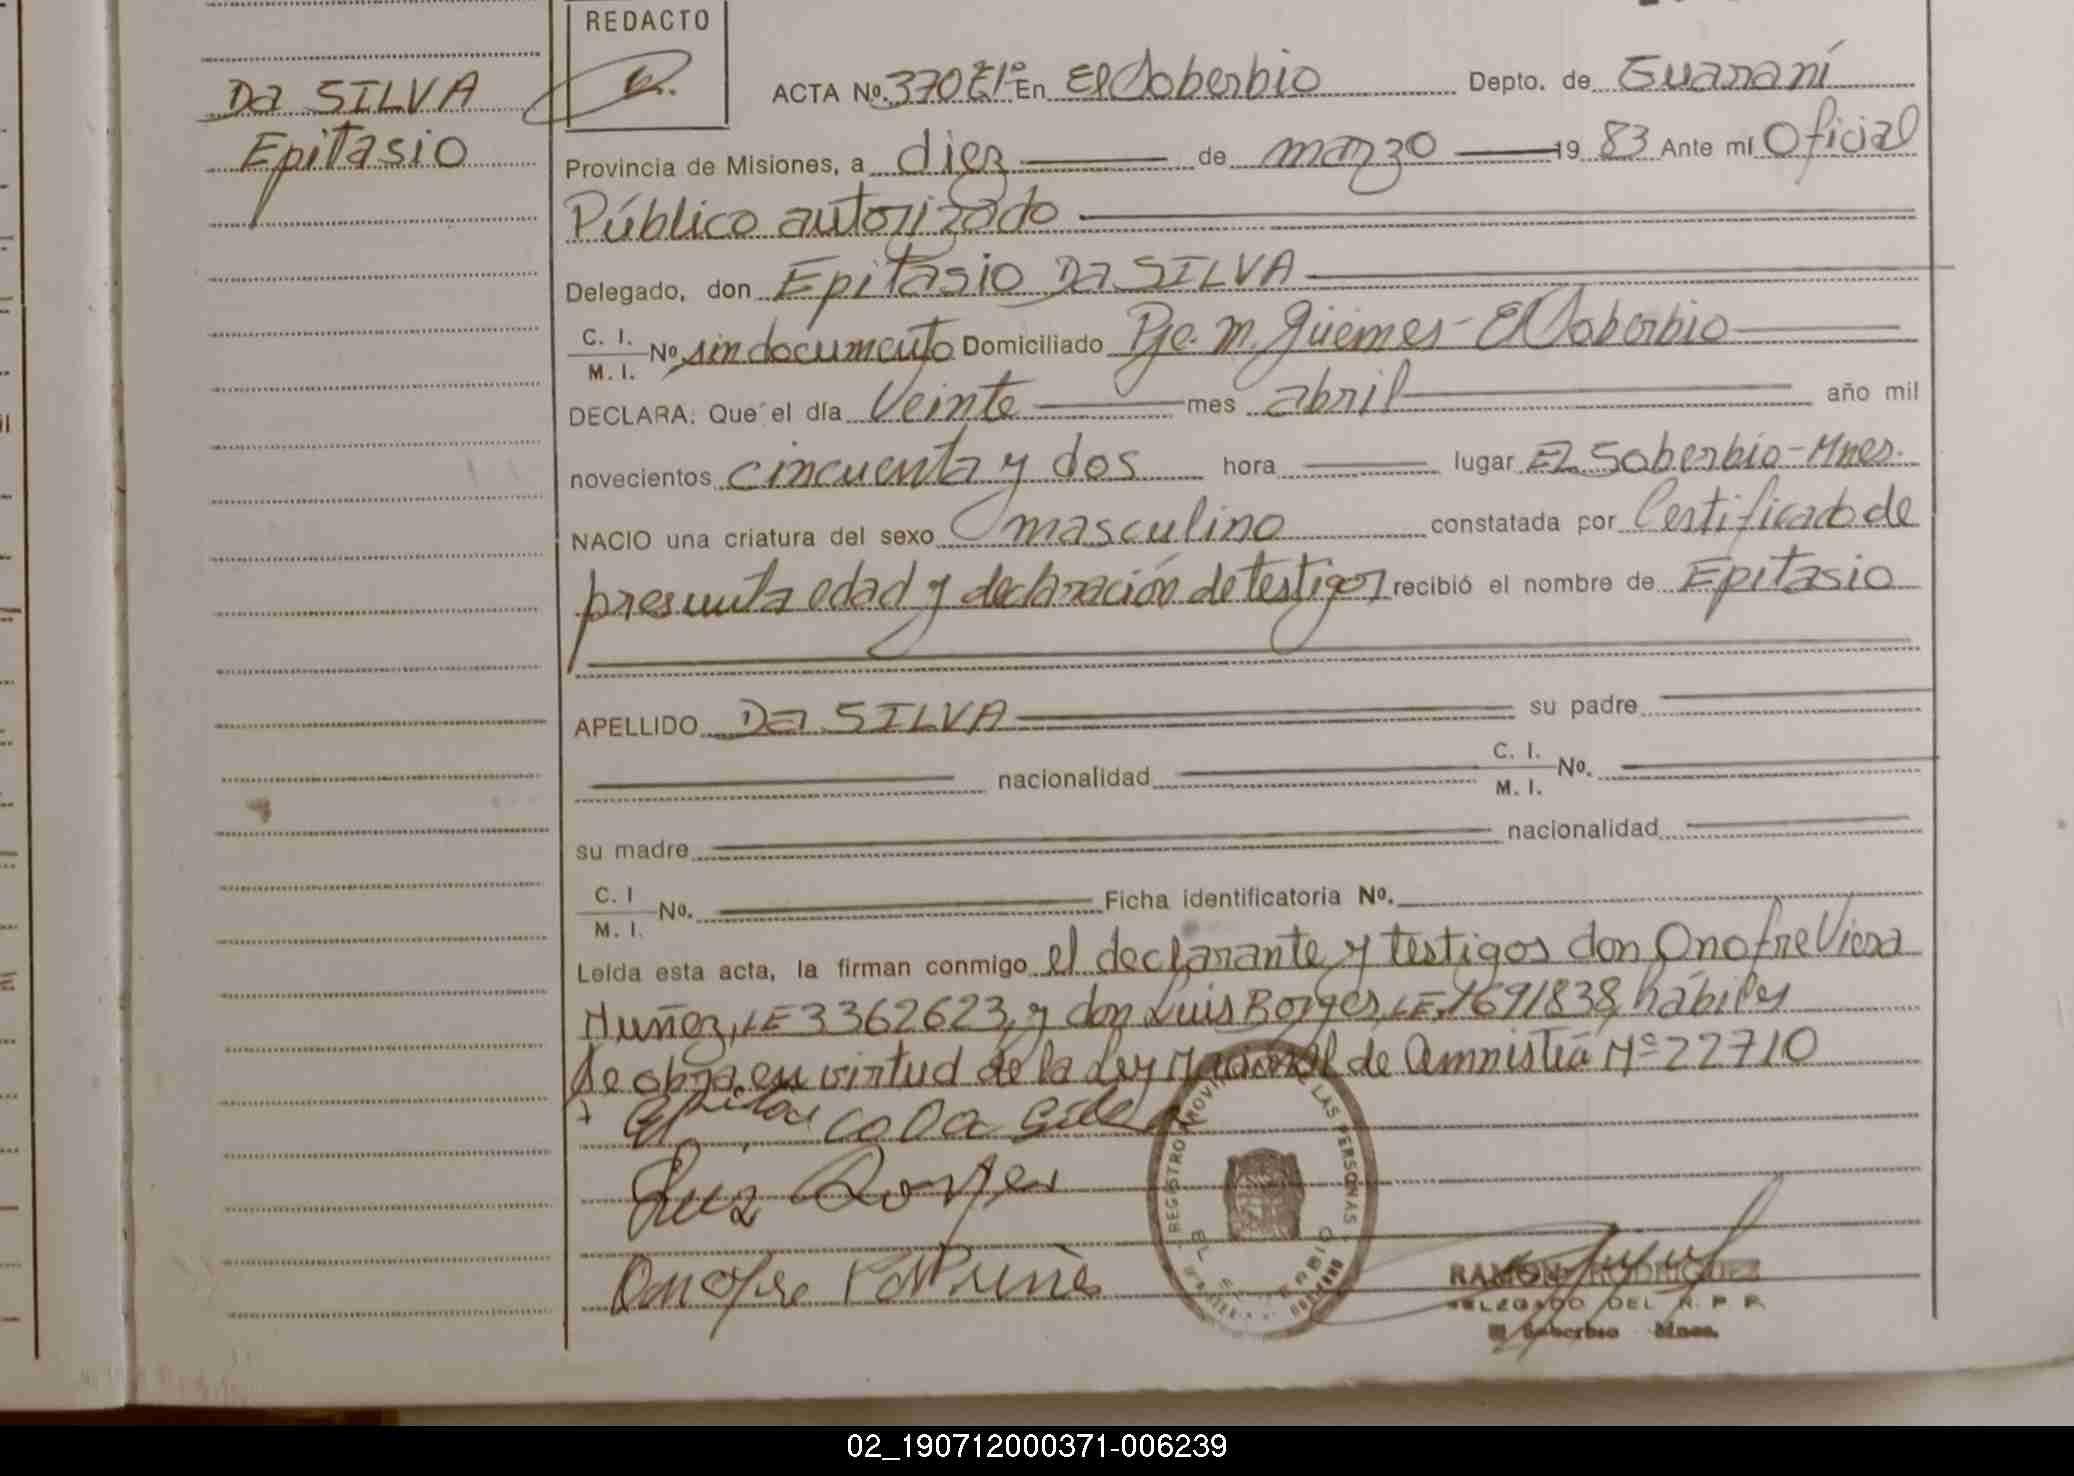 REDACTO
DA SILVA
Epitasio
ACTA Nº. 370 Tº1º En El Soberbio Depto. de Guaraní
Provincia de Misiones, a diez de marzo 1983 Ante mí Oficial
Público autorizado
Delegado, don Epitasio DA SILVA
C. I.
M. I. Nº sin documento Domiciliado Pje. M. Güemes - El Soberbio
DECLARA: Que el día Veinte mes abril año mil
novecientos cincuenta y dos hora lugar El Soberbio - Mnes.
NACIO una criatura del sexo masculino constatada por Certificado de
presunta edad y declaración de testigos recibió el nombre de Epitasio
APELLIDO DA SILVA su padre
nacionalidad C. I.
M. I. Nº.
su madre nacionalidad
C. I
M. I. Nº. Ficha identificatoria Nº.
Leída esta acta, la firman conmigo el declarante y testigos don Onofre Viera
Muñoz, LE 3362623, y don Luis Borges, LE. 1691838, hábiles
Se obra en virtud de la Ley Nacional de Amnistía Nº 22710
REGISTRO PROVINCIAL DE LAS PERSONAS
EL SOBERBIO
RAMON RODRIGUEZ
DELEGADO DEL R. P. P.
El Soberbio Mnes.
02_190712000371-006239